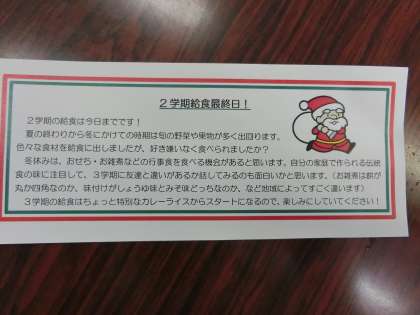 ２学期給食最終日！
２学期の給食は今日までです！
夏の終わりから冬にかけての時期は旬の野菜や果物が多く出回ります。
色々な食材を給食に出しましたが、好き嫌いなく食べられましたか？
冬休みは、おせち・お雑煮などの行事食を食べる機会があると思います。自分の家庭で作られる伝統
食の味に注目して、３学期に友達と違いがあるか話してみるのも面白いかと思います。（お雑煮は餅が
丸か四角なのか、味付けがしょうゆ味とみそ味どっちなのか、など地域によってすごく違います）
３学期の給食はちょっと特別なカレーライスからスタートになるので、楽しみにしていてください！